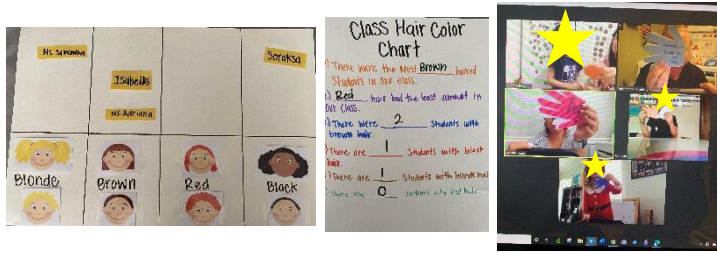 Ms. Samantha
Soraksa
Isabelle
Ms. Adriana
Blonde
Brown
Red
Black
Class Hair Color
Chart
There were the most Brown haired
Students in our class.
Red hair had the least amount in
our class.
There were 2 Students with
brown hair.
There are 1 Students with black
hair.
There are 1 Students with blonde hair
There are 0 students with red hair